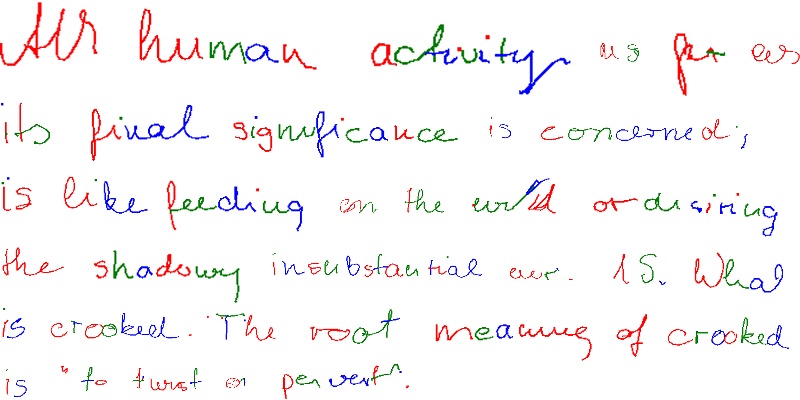 All human activity, as far as
its final significance is concerned,
is like feeding on the wind or desiring
the shadowy insubstantial air. 15. What
is crooked. The root meaning of crooked
is "to twist or pervert".